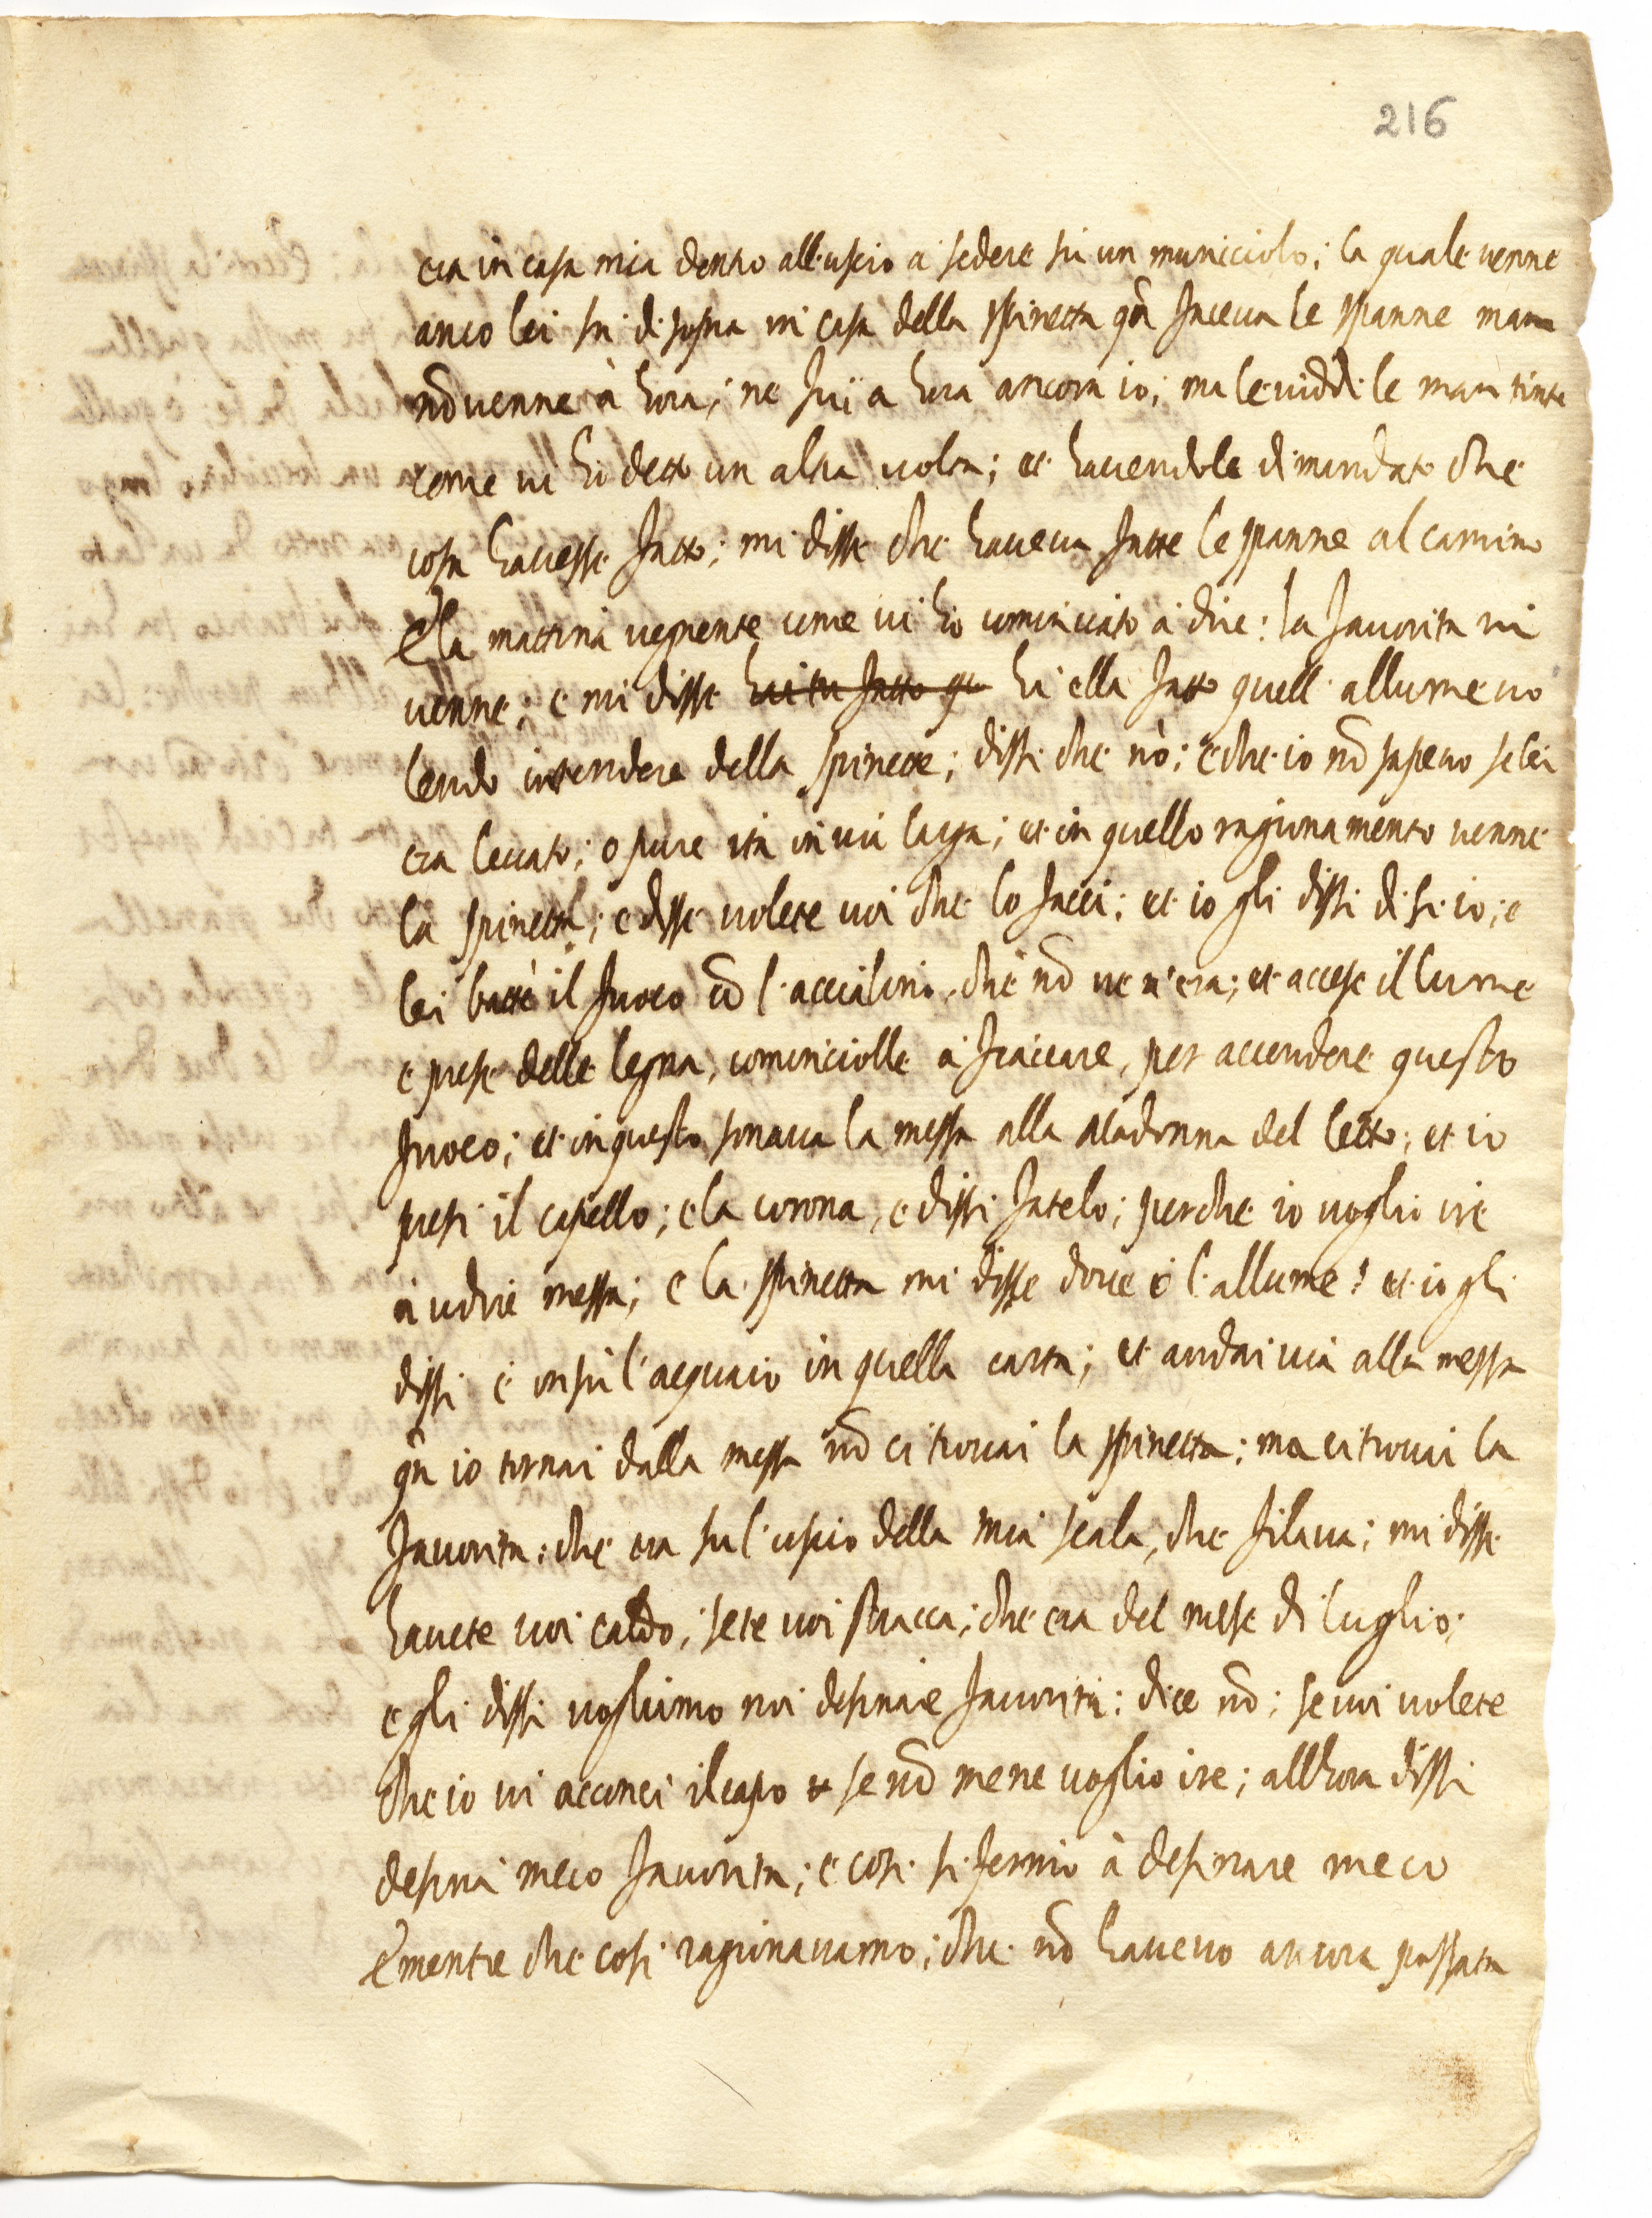 216
era in casa mia dentro all'uscio à sedere su un muricciolo; la quale venne
anco lei su di sopra in casa della spinetta qñ faceva le spanne ma
nõ venne à hora; ne fui a hora ancora io; ma le viddi le man tinte
come vi hò detto un altra volta; et havendole dimandato che
cosa havesse fatto; mi disse che haveva fatte le spanne al camino
E la mattina vegnente come vi hò cominciato à dire: la favorita mi
venne; e mi disse hai tu fatto qu hà ella fatto quell' allume vo
lendo intendere della spinetta; dissi che nò; e che io nõ sapevo se lei
era levata; o pure ita in vià larga; et in quello ragionamento venne
la spinetta; e disse volete voi che lo facci; et io gli dissi di si io; e
lei battè il fuoco cõ l'accialino, che nõ ve n'era; et accese il lume
e prese delle legna, cominciolle à fiaccare, per accendere questo
fuoco; et in questo sonava la messa alla Madonna del letto; et io
presi il capello; e la corona, e dissi fatelo; perche io voglio ire
à udire messa; e la spinetta mi disse dove è l'allume? et io gli
dissi è in sù l'acquaio in quella carta; et andai via alla messa
qñ io tornai dalla messa nõ ci trovai la spinetta: ma ci trovai la
favorita: che era su l'uscio della mia scala, che filava; mi disse
havete voi caldo; sete voi stracca; che era del mese di luglio;
e gli dissi vogliamo noi desinare favorita: dice nõ; se voi volete
che io vi acconci il capo se nõ me ne voglio ire; all'hora dissi
desina meco favorita; e così si fermò à desinare meco
E mentre che così ragionavamo; che nõ havevo ancora passata